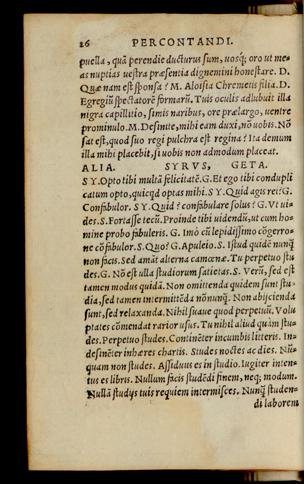 26 PERCONTANDI.
puella, quã perendie ducturus sum, uosq́; oro ut me-
as nuptias uestra præsentia dignemini honestare. D.
Quæ nam est sponsa? M. Aloisia Chremetis filia. D.
Egregiũ spectatorẽ formarũ. Tuis oculis adlubuit illa
nigra capillitio, simis naribus, ore prælargo, uentre
prominulo. M. Desinite, mihi eam duxi, nõ uobis. Nõ
sat est, quod suo regi pulchra est regina? Ita demum
illa mihi placebit, si uobis non admodum placeat.
ALIA. SYRVS, GETA.
SY. Opto tibi multã felicitatẽ. G. Et ego tibi condupli
catum opto, quicqd optas mihi. SY. Quid agis rei? G.
Confabulor. SY. Quid? confabulare solus? G. Vt ui-
des. S. Fortasse tecũ. Proinde tibi uidendũ, ut cum ho-
mine probo fabuleris. G. Imò cũ lepidissimo cõgerro-
ne cõfabulor. S. Quo? G. Apuleio. S. Istud quidẽ nunq̃
non facis. Sed amãt alterna camœnæ. Tu perpetuo stu
des. G. Nõ est ulla studiorum satietas. S. Verũ, sed est
tamen modus quidã. Non omittenda quidem sunt stu-
dia, sed tamen intermittẽda nõnunq̃. Non abijcienda
sunt, sed relaxanda. Nihil suaue quod perpetuũ. Volu
ptates cõmendat rarior usus. Tu nihil aliud quàm stu-
des. Perpetuo studes. Continẽter incumbis litteris. In-
desinẽter inhæres chartis. Studes noctes ac dies. Nũ-
quam non studes. Assiduus es in studio. Iugiter inten-
tus es libris. Nullum facis studẽdi finem, neq; modum.
Nullã studijs tuis requiem intermisces. Nunq̃ studen-
di laborem